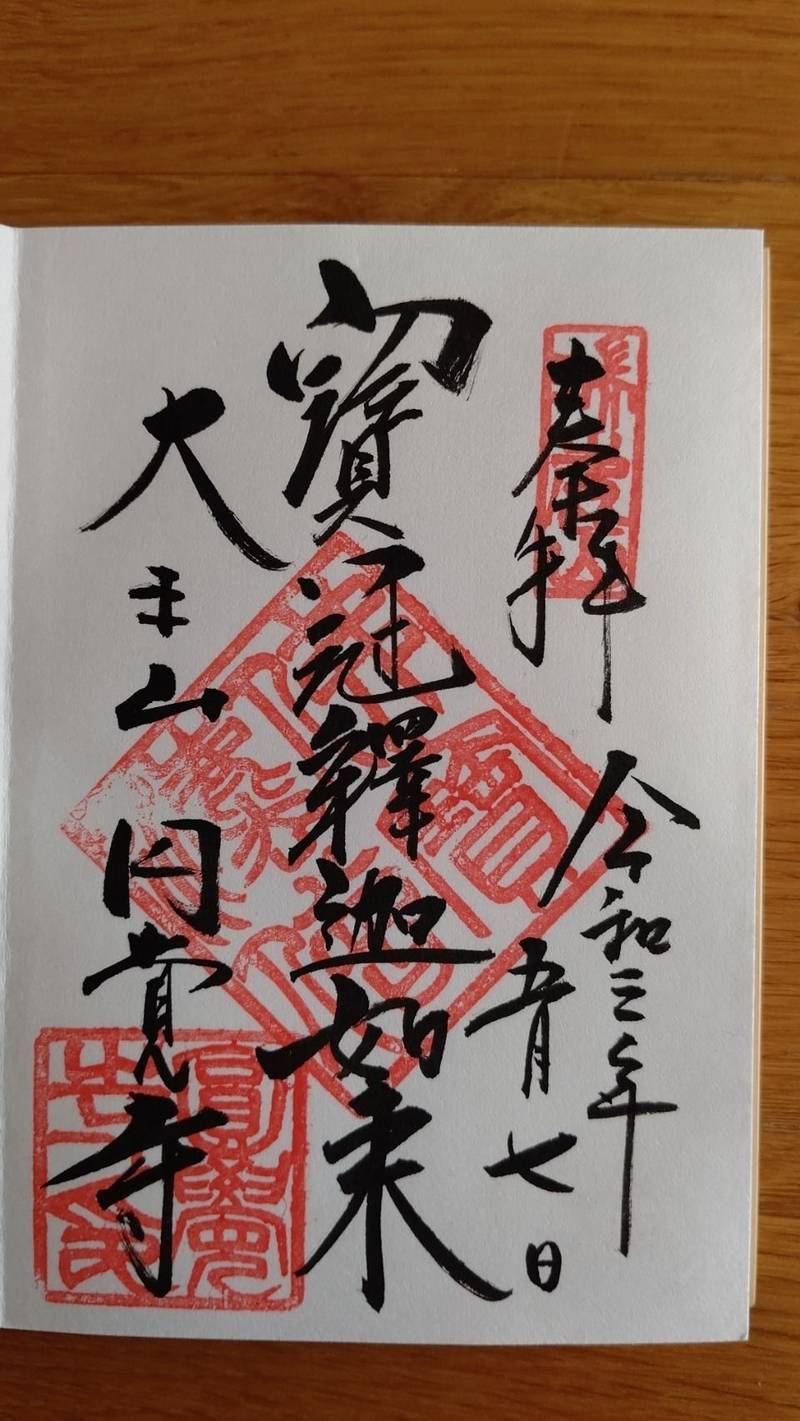 奉拝
令和三年
五月七日
寳冠釋迦如来
大本山
円覚寺